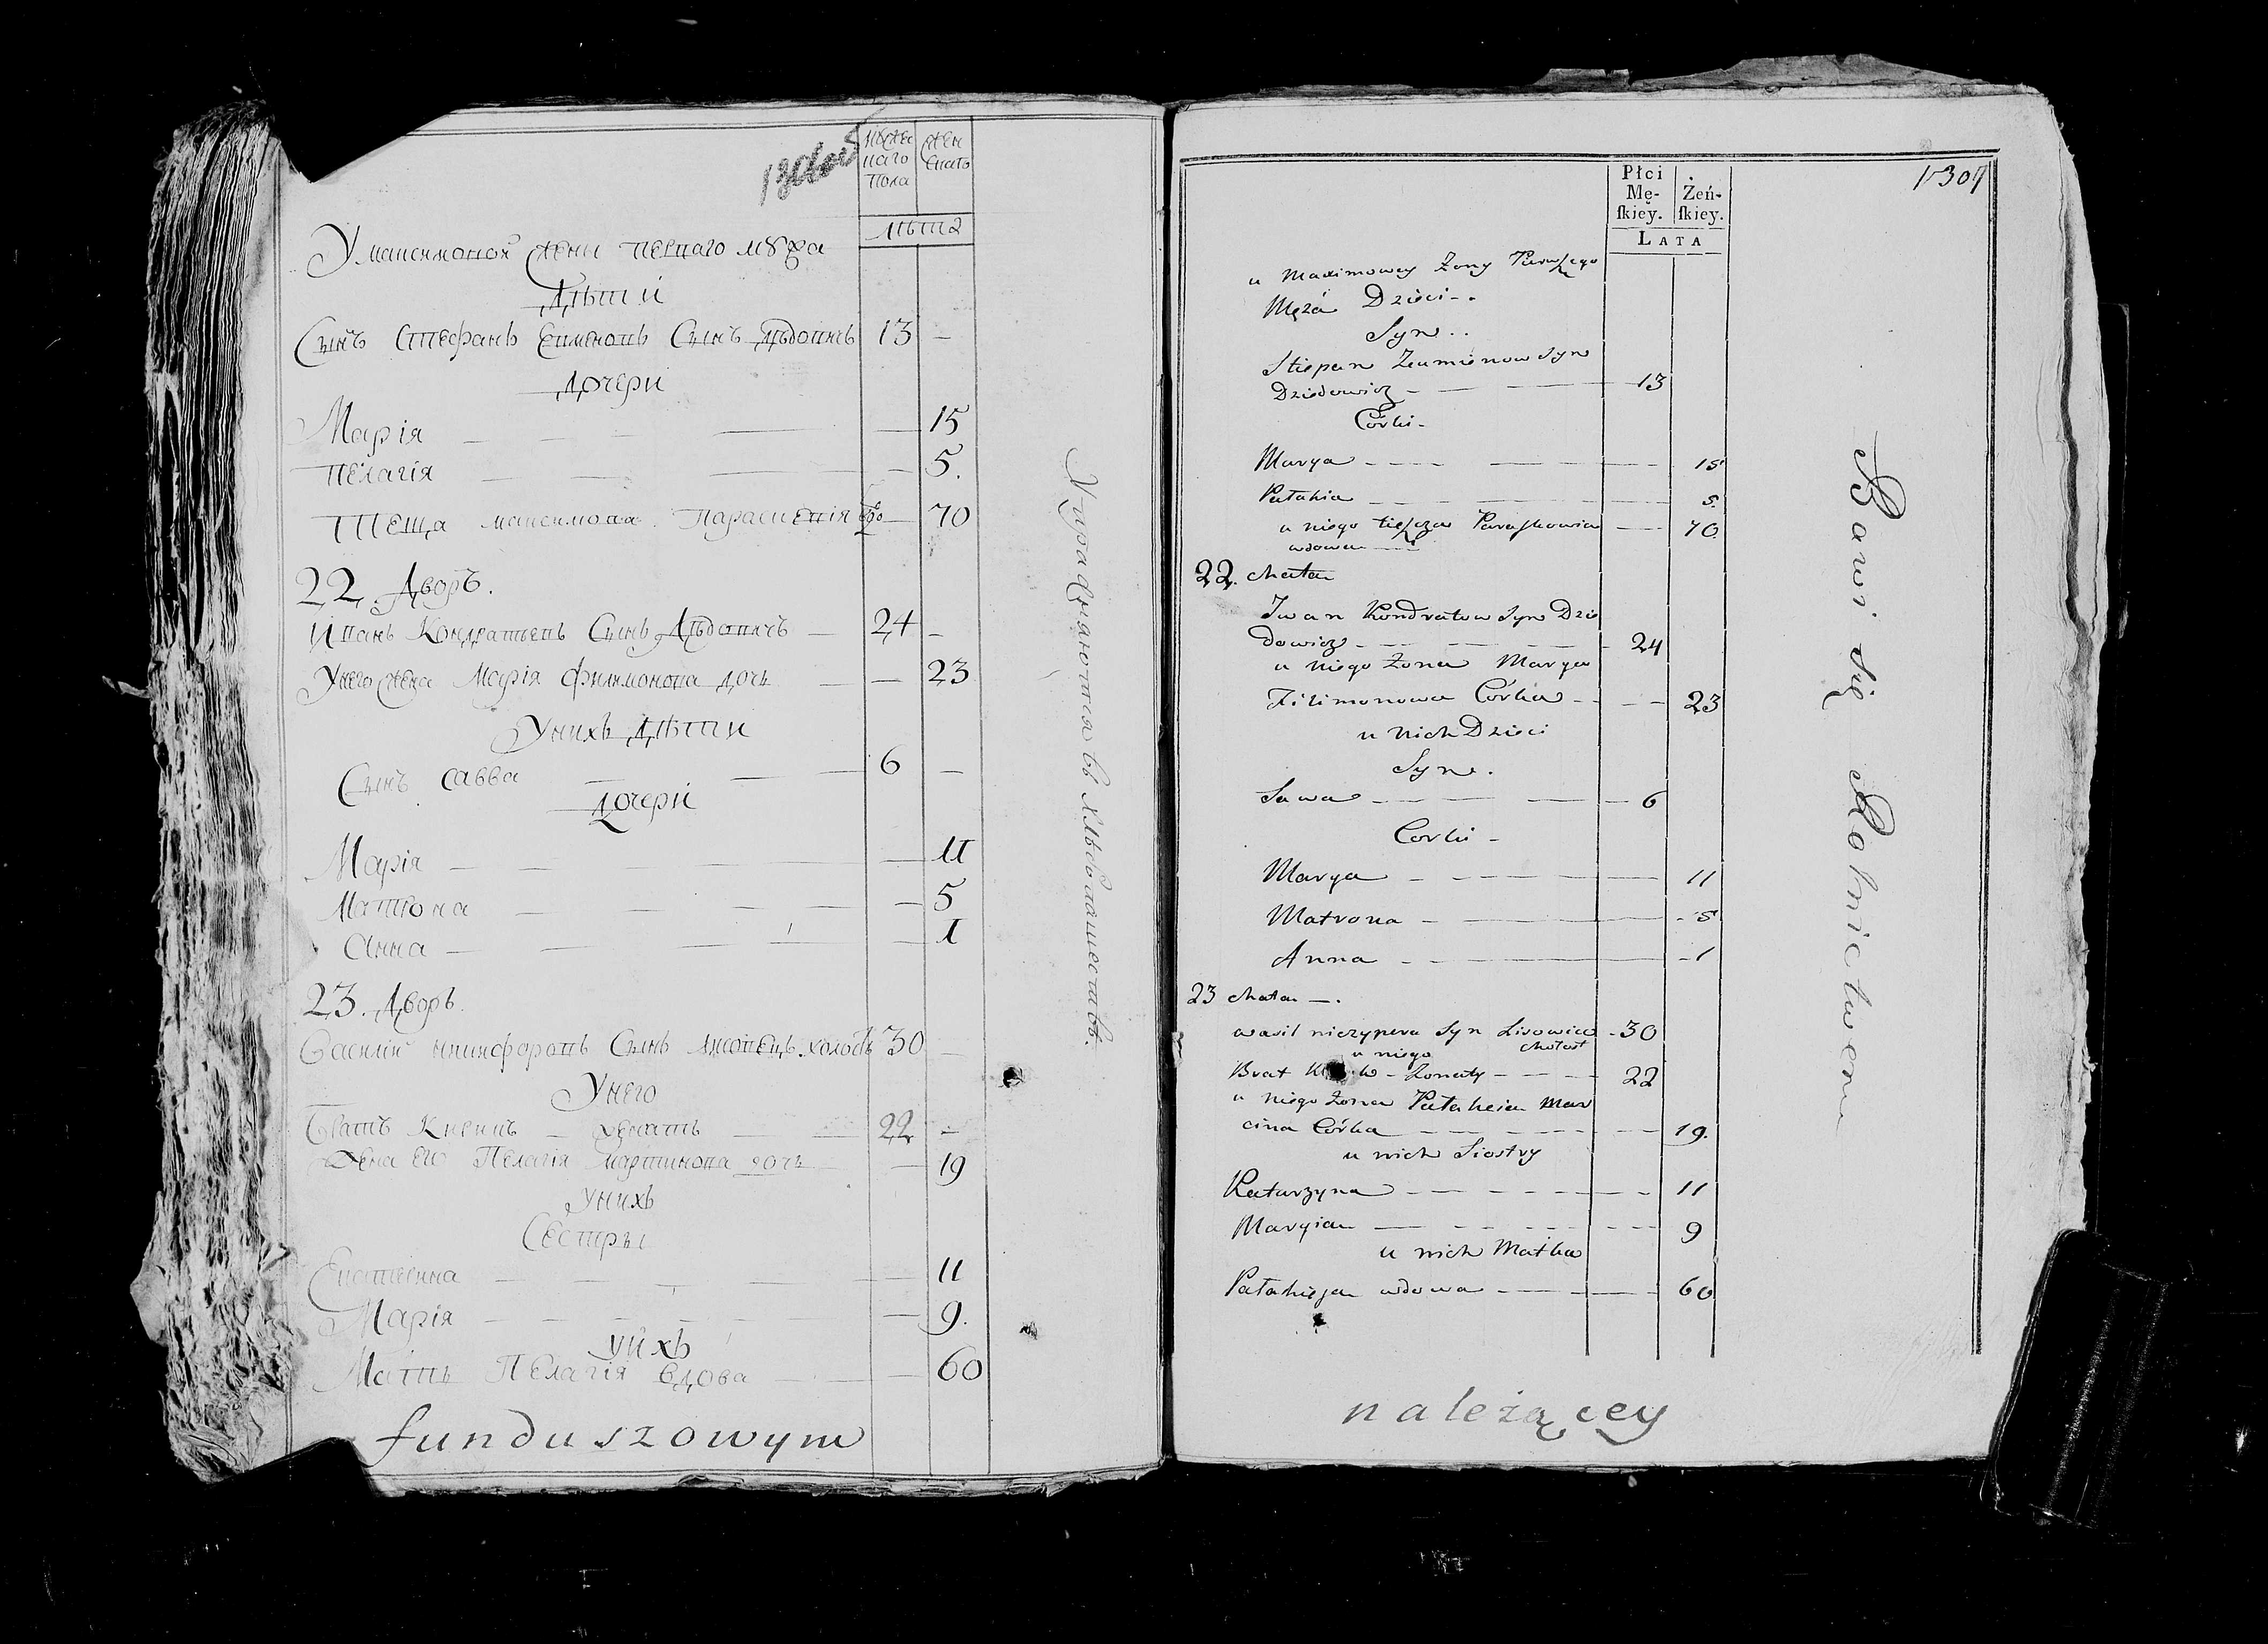 мужес
каго
пола
жен
скаго
лѣта
У максимовой жены перваго мужа
дѣти
Сынъ Стефанъ Сынъ Дѣдовичь 13 —
дочери
Марія — — — — 15
Пелагія — — — 5.
Теща максимова Параскевія 70
22. Дворъ.
Иванъ Кондратьевъ Сынъ Дѣдовичъ — 24 —
У него жена Марія Филимонова дочь — — 23
У нихъ дѣти
Сынъ Савва — — 6 —
дочери
Марія — — — 11
Матрона — — — 5
Анна — — — 1
23. Дворъ.
Василій Никифоровъ Сынъ холостъ 30 —
У него
Братъ — женатъ — 22 —
Жена ево Пелагія Мартинова дочь — 19
У нихъ
Сестры
Екатерина — — — 11
Марія — — — 9.
у нихъ
Мать Пелагія вдова — — 60
funduszowym
Упражняются въ хлѣбопашествѣ.
1307
Płci
Mę-
ſkiey.
Żeń-
ſkiey.
LATA
u Maximowey Żony Pierwszego
Męża Dzieci -.
Syn..
Stiepan Syn
Dziedowicz — — 13
Córki -
Marya — — — 15
Pałahia — — — 5.
u niego tieszcza Paraskowia — 70
wdowa —
22. chata
Iwan Kondratow Syn Dzie
dowicz — — 24
u niego Żona Marya
Filimonowa Córka — — 23
u nich Dzieci
Syn.
Sawa — — — 6
Corki -
Marya — — — 11
Matrona — — 5
Anna — — 1
23 chata —.
wasil niczypera Syn Lisowiec - 30
u niego chołost
Brat - Żonaty — — 22
u niego Żona Pałaheia Mar
cina Córka — — — 19.
u nich Siostry
Katarzyna — — — 11
Maryia — — — 9
u nich Matka
Pałahieja wdowa — — 60
Bawi się Rolnictwem
należącey